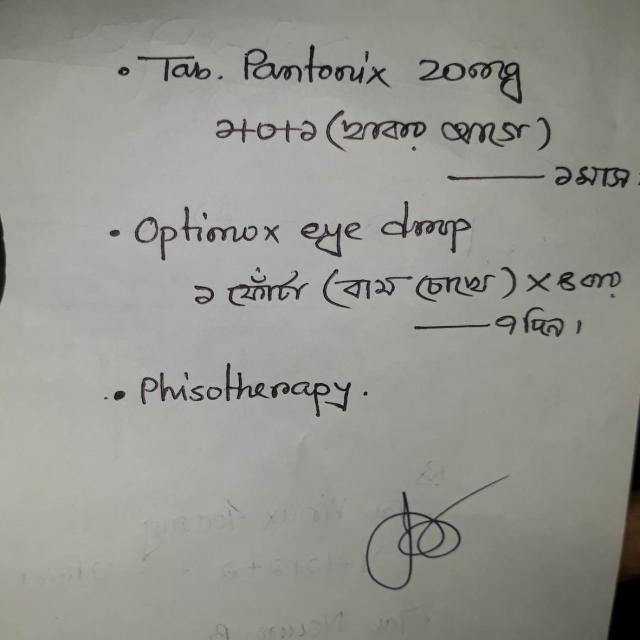 • Tab. Pantonix 20mg
১+০+১ (খাবার আগে)
—— ১ মাস
• Optimox eye drop
১ ফোঁটা (বাম চোখে) × ৪ বার
—— ৭ দিন।
• Phisotherapy.
Rx